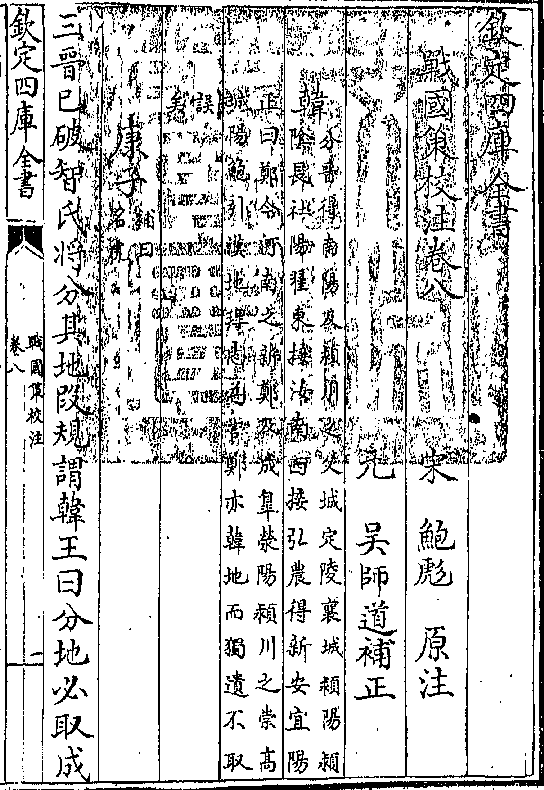 欽定四庫全書
戰國策校注卷八
宋 鮑彪 原注
元 吳師道補正
韓
分晉得南陽及潁川之父城定陵襄城潁陽潁
陰長社陽翟東接汝南西接弘農得新安宜陽
正曰鄭今河南之新鄭及成皋滎陽潁川之崇高
陽鮑引漢地鄭亦韓地而獨遺不取
誤
康子
名虎
三晉已破智氏将分其地段規謂韓王曰分地必取成
欽定四庫全書
戰國策校注
卷八
一